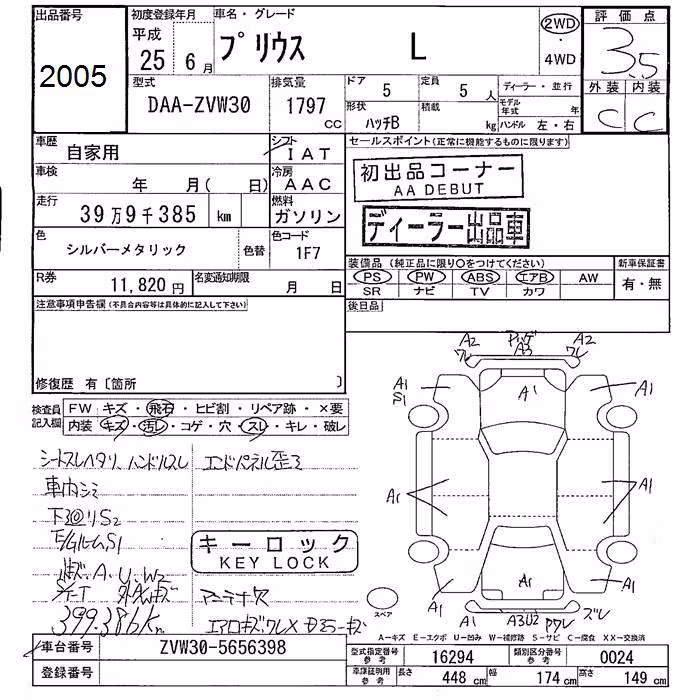 出品番号
2005
初度登録年月
平成
25 6月
車名・グレード
プリウス L
2WD
4WD
評価点
3.5
外装 内装
C C
型式
DAA-ZVW30
排気量
1797
CC
ドア
5
定員
5 人
形状
ハッチB
積載
kg
ディーラー・並行
モデル
年式
年
ハンドル 左・右
車歴
自家用
シフト
I A T
車検
年 月( 日)
冷房
A A C
走行
39万9千385 km
燃料
ガソリン
色
シルバーメタリック
色替
色コード
1F7
R券
11,820 円
名変通知期限
月 日
セールスポイント(正常に機能するものに限ります)
初出品コーナー
AA DEBUT
ディーラー出品車
装備品(純正品に限り○をつけてください)
PS PW ABS エアB AW
SR ナビ TV カワ
新車保証書
有・無
後日品
注意事項申告欄(不具合内容等は具体的に記入して下さい)
修復歴 有〔箇所 〕
検査員
記入欄
FW キズ・飛石・ヒビ割・リペア跡・×要
内装 キズ・汚レ・コゲ・穴・スレ・キレ・破レ
シートスレヘタリ、ハンドルスレ
エンドパネル歪ミ
車内シミ
下廻リS2
E/GルームS1
A、U、W2
399.386km
キーロック
KEY LOCK
アンテナ欠
A2
A3
A2
ワレ
ワレ
A1
S1
A1
A1
A1
A1
A1
A1
A1
A3U2
ワレ
ズレ
スペア
A-キズ E-エクボ U-凹み W-補修跡 S-サビ C-腐食 XX-交換済
車台番号
ZVW30-5656398
登録番号
型式指定番号
参考
16294
類別区分番号
参考
0024
車庫証明用
参考
長さ
448 cm
幅
174 cm
高さ
149 cm